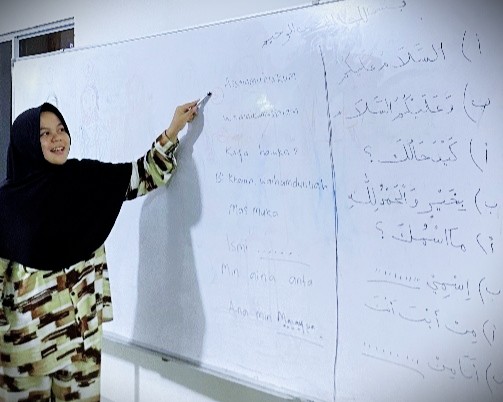 Assamualaikum
Kaifa haluka?
Bi khoirin walhamdulillah
Mas muka
Ismi ......
Min aina anta
Ana min Malaysia
أ) السَّلَامُ عَلَيْكُمْ
ب) وَعَلَيْكُمُ السَّلَامُ
أ) كَيْفَ حَالُكَ ؟
ب) بِخَيْرٍ وَالْحَمْدُ لِلَّهِ
أ) مَا اسْمُكَ ؟
ب) اِسْمِيْ ........
أ) مِنْ أَيْنَ أَنْتَ
ب) أَنَا مِنْ ........